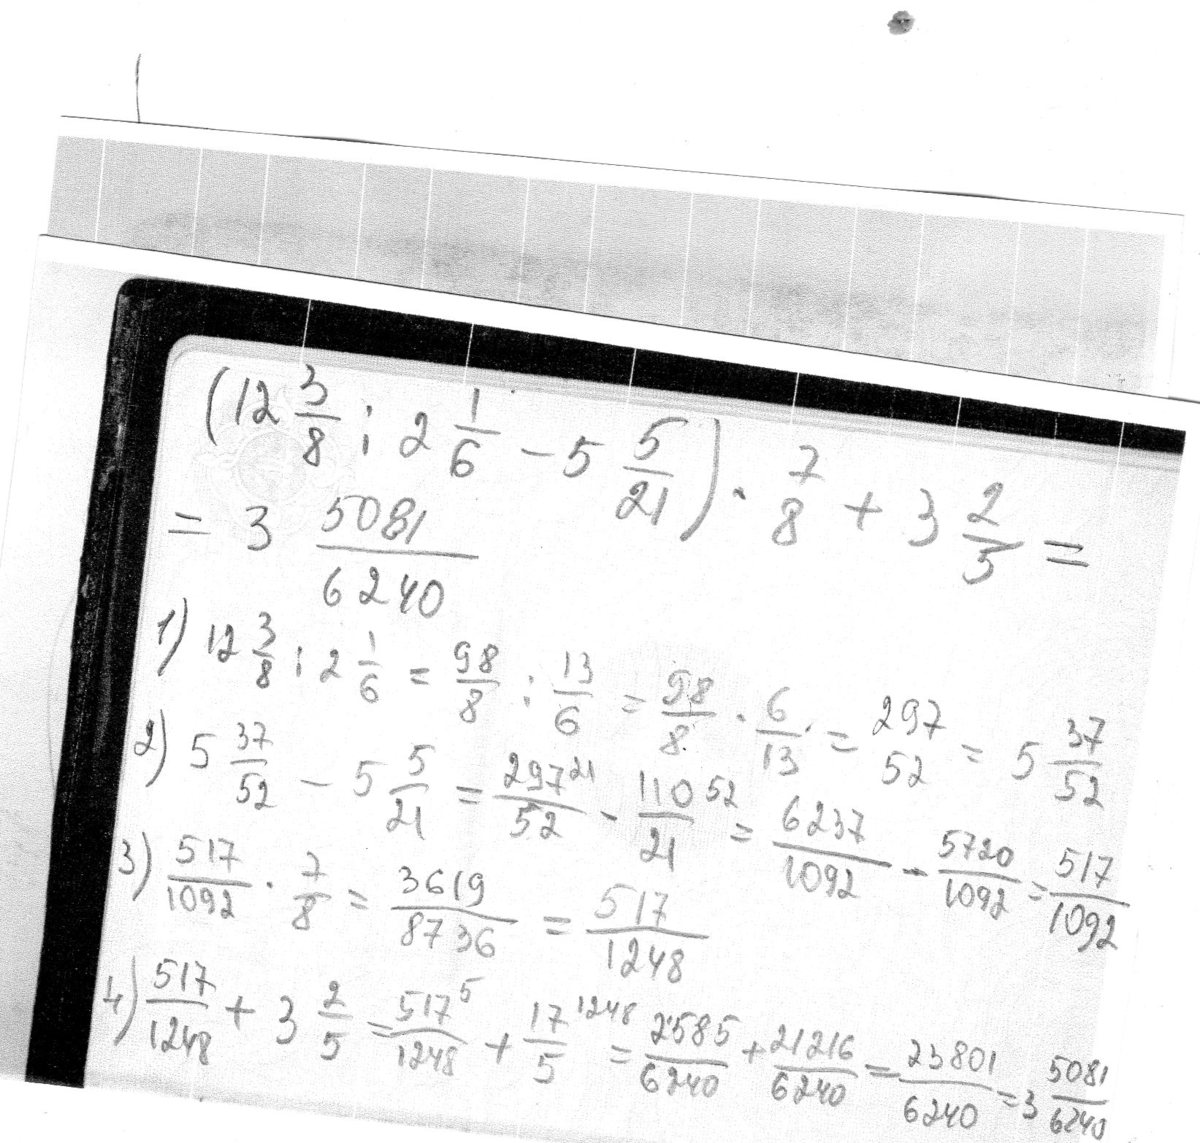 (12 3/8 : 2 1/6 - 5 5/21) · 7/8 + 3 2/5 =
= 3 5081/6240
1) 12 3/8 : 2 1/6 = 98/8 : 13/6 = 98/8 · 6/13 = 297/52 = 5 37/52
2) 5 37/52 - 5 5/21 = 297^21/52 - 110^52/21 = 6237/1092 - 5720/1092 = 517/1092
3) 517/1092 · 7/8 = 3619/8736 = 517/1248
4) 517/1248 + 3 2/5 = 517^5/1248 + 17^1248/5 = 2585/6240 + 21216/6240 = 23801/6240 = 3 5081/6240